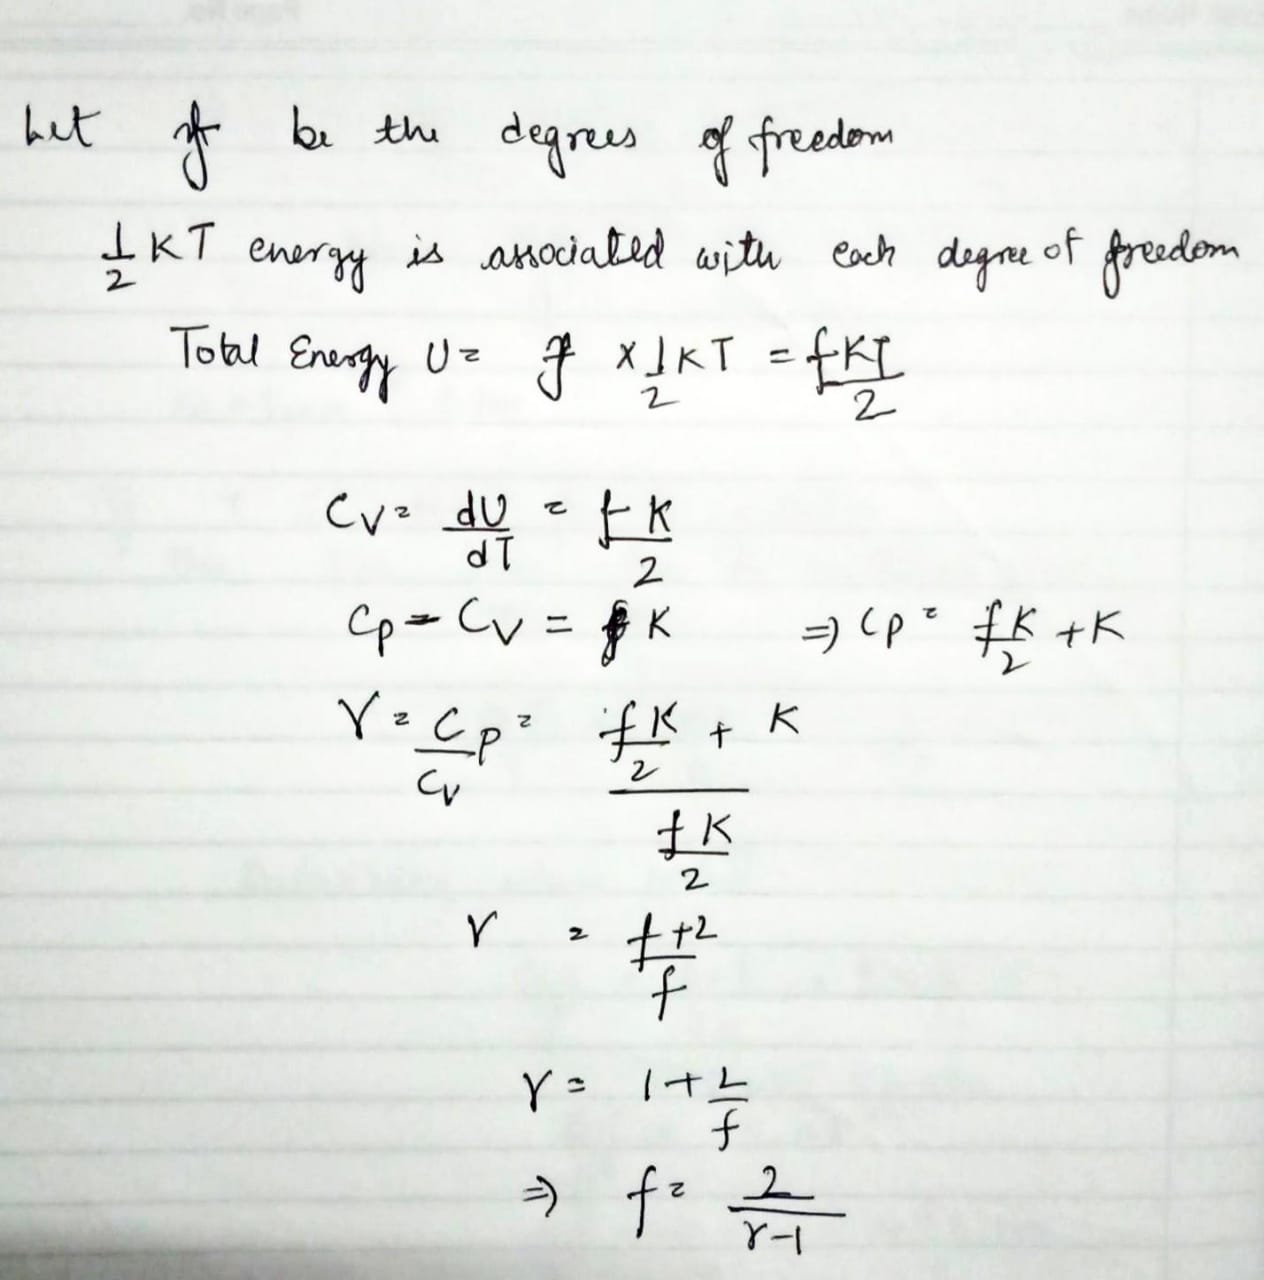 Let f be the degrees of freedom
1/2 KT energy is associated with each degree of freedom
Total Energy U = f × 1/2 KT = fKT/2
Cv = dU/dT = fK/2
Cp - Cv = K ⇒ Cp = fK/2 + K
γ = Cp/Cv = (fK/2 + K)/(fK/2)
γ = (f+2)/f
γ = 1 + 2/f
⇒ f = 2/(γ-1)